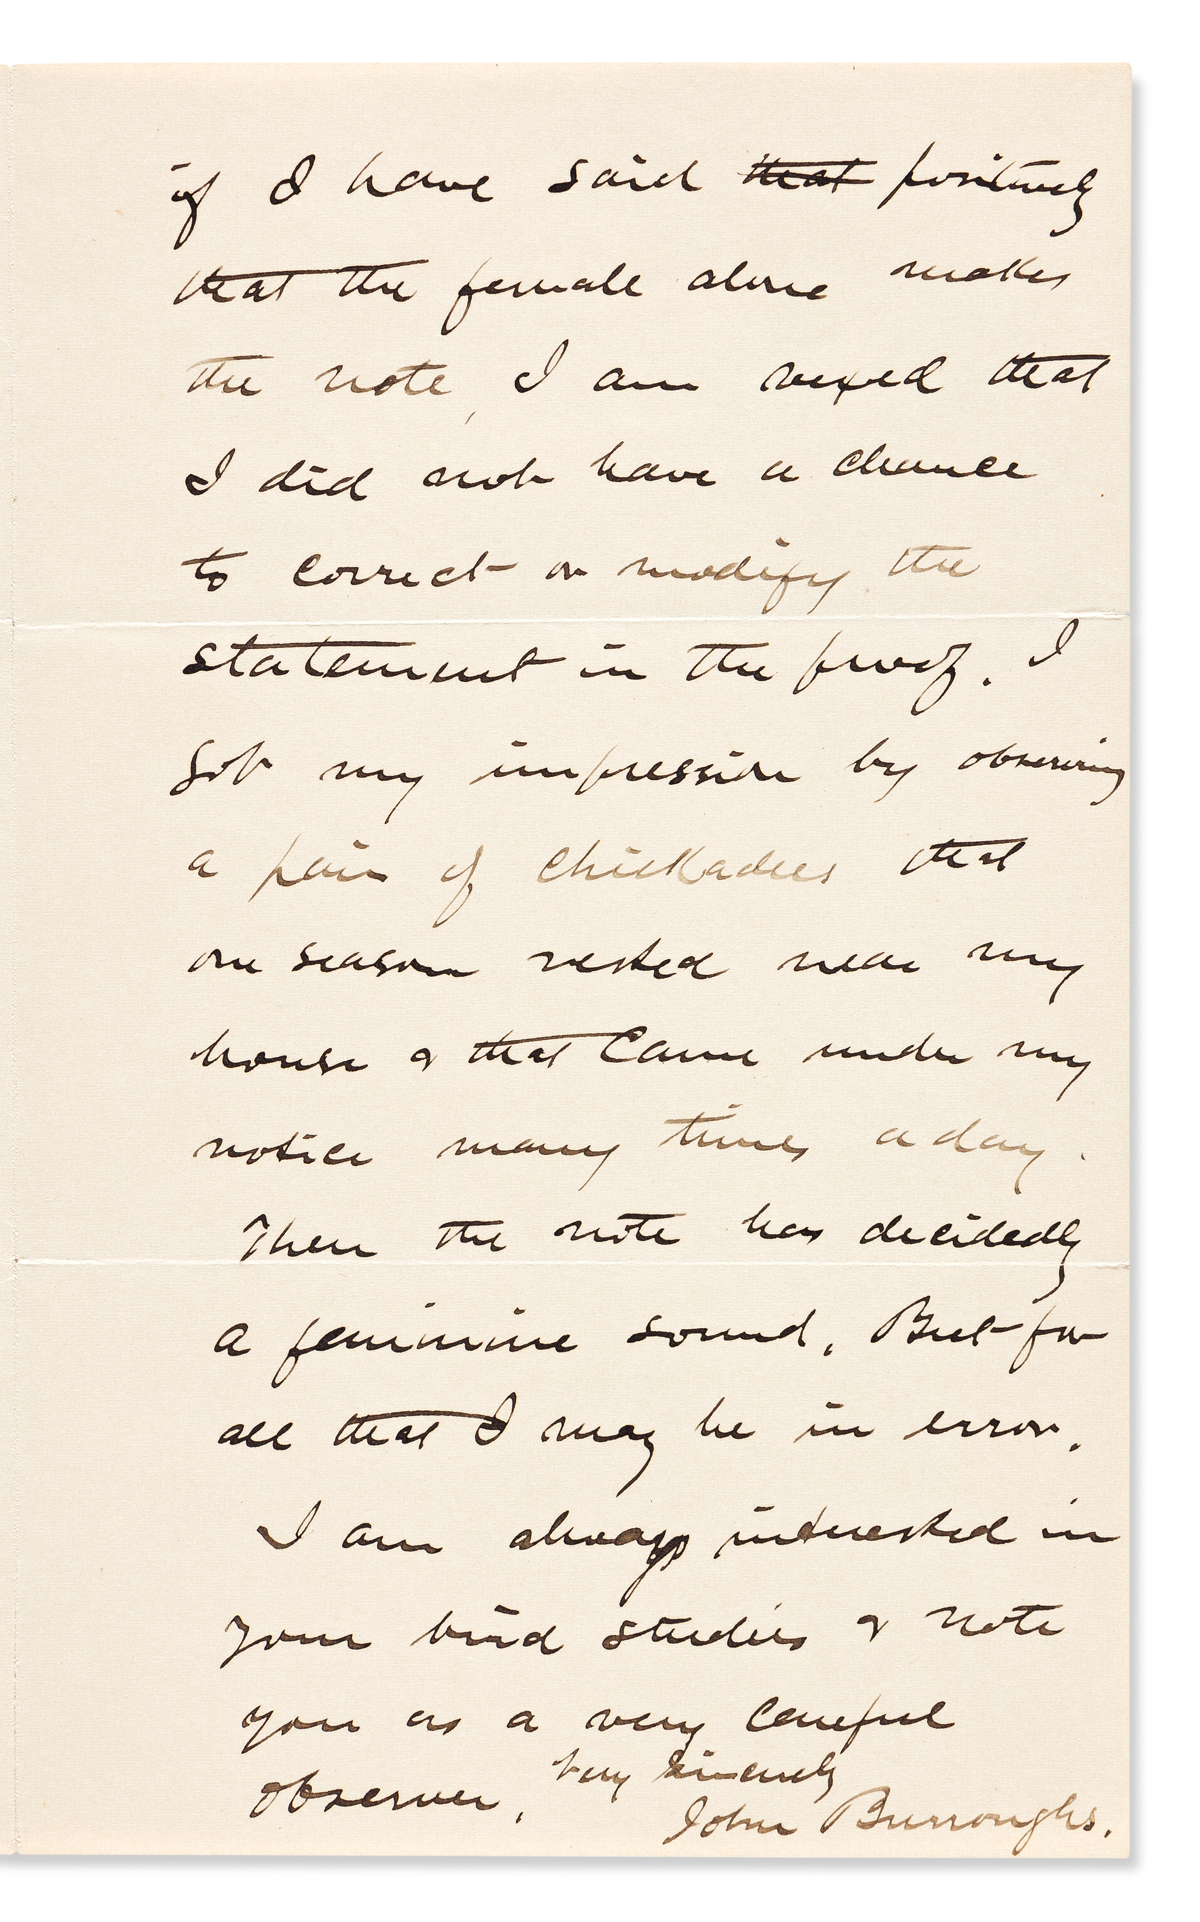 if I have said ~~that~~ positively
that the female alone makes
the note, I am vexed that
I did not have a chance
to correct or modify the
statement in the proof. I
got my impression by observing
a pair of chickadees that
one season nested near my
house & that came under my
notice many times a day.
Then the note has decidedly
a feminine sound. But for
all that I may be in error.
I am always interested in
your bird studies & note
you as a very careful
observer.
Very sincerely
John Burroughs.